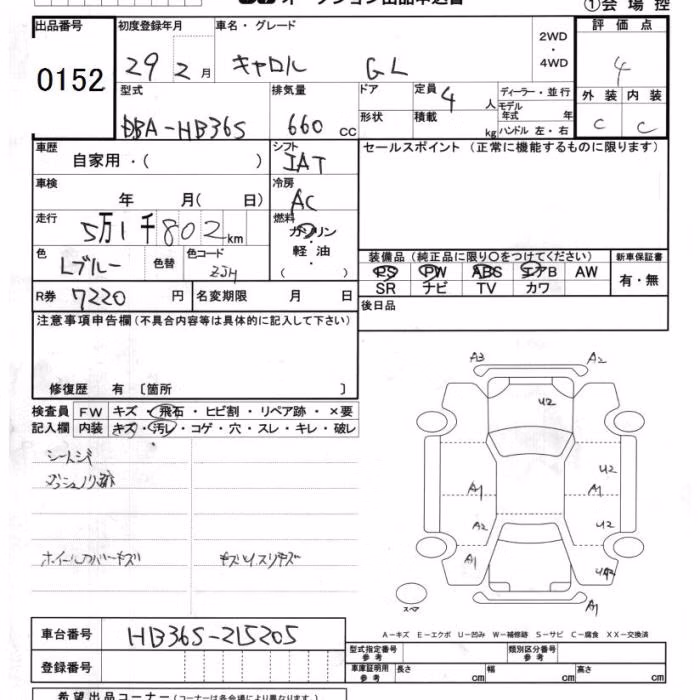 オークション出品申込書
①会場控
出品番号 初度登録年月 車名・グレード 評価点
0152 29年2月 キャロル GL 2WD・4WD 4
型式 排気量 ドア 定員 4人 ディーラー・並行 外装 内装
DBA-HB36S 660cc 形状 積載 kg モデル年式 年 ハンドル 左・右 C C
車歴 シフト セールスポイント(正常に機能するものに限ります)
自家用・( ) IAT
車検 冷房
年 月( 日) AC
走行 燃料
5万1千802km ガソリン・軽油・( )
色 色替 色コード 装備品(純正品に限り○をつけてください) 新車保証書
Lブルー ZJH PS PW ABS エアB AW 有・無
SR ナビ TV カワ
R券 7220円 名変期限 月 日 後日品
注意事項申告欄(不具合内容等は具体的に記入して下さい)
修復歴 有〔箇所 〕
検査員 FW キズ・飛石・ヒビ割・リペア跡・×要
記入欄 内装 キズ・汚レ・コゲ・穴・スレ・キレ・破レ
シートシミ
ダッシュノリ跡
ホイールカバーキズ キズ・スリキズ
A3 A2
U2
U2
A1 A1
A2 U2
A1 UA2
A1
スペア
A-キズ E-エクボ U-凹み W-補修跡 S-サビ C-腐食 XX-交換済
車台番号 HB36S-215205
型式指定番号 参考 類別区分番号 参考
登録番号
車庫証明用 参考 長さ cm 幅 cm 高さ cm
希望出品コーナー(コーナーは各会場により異なります。)